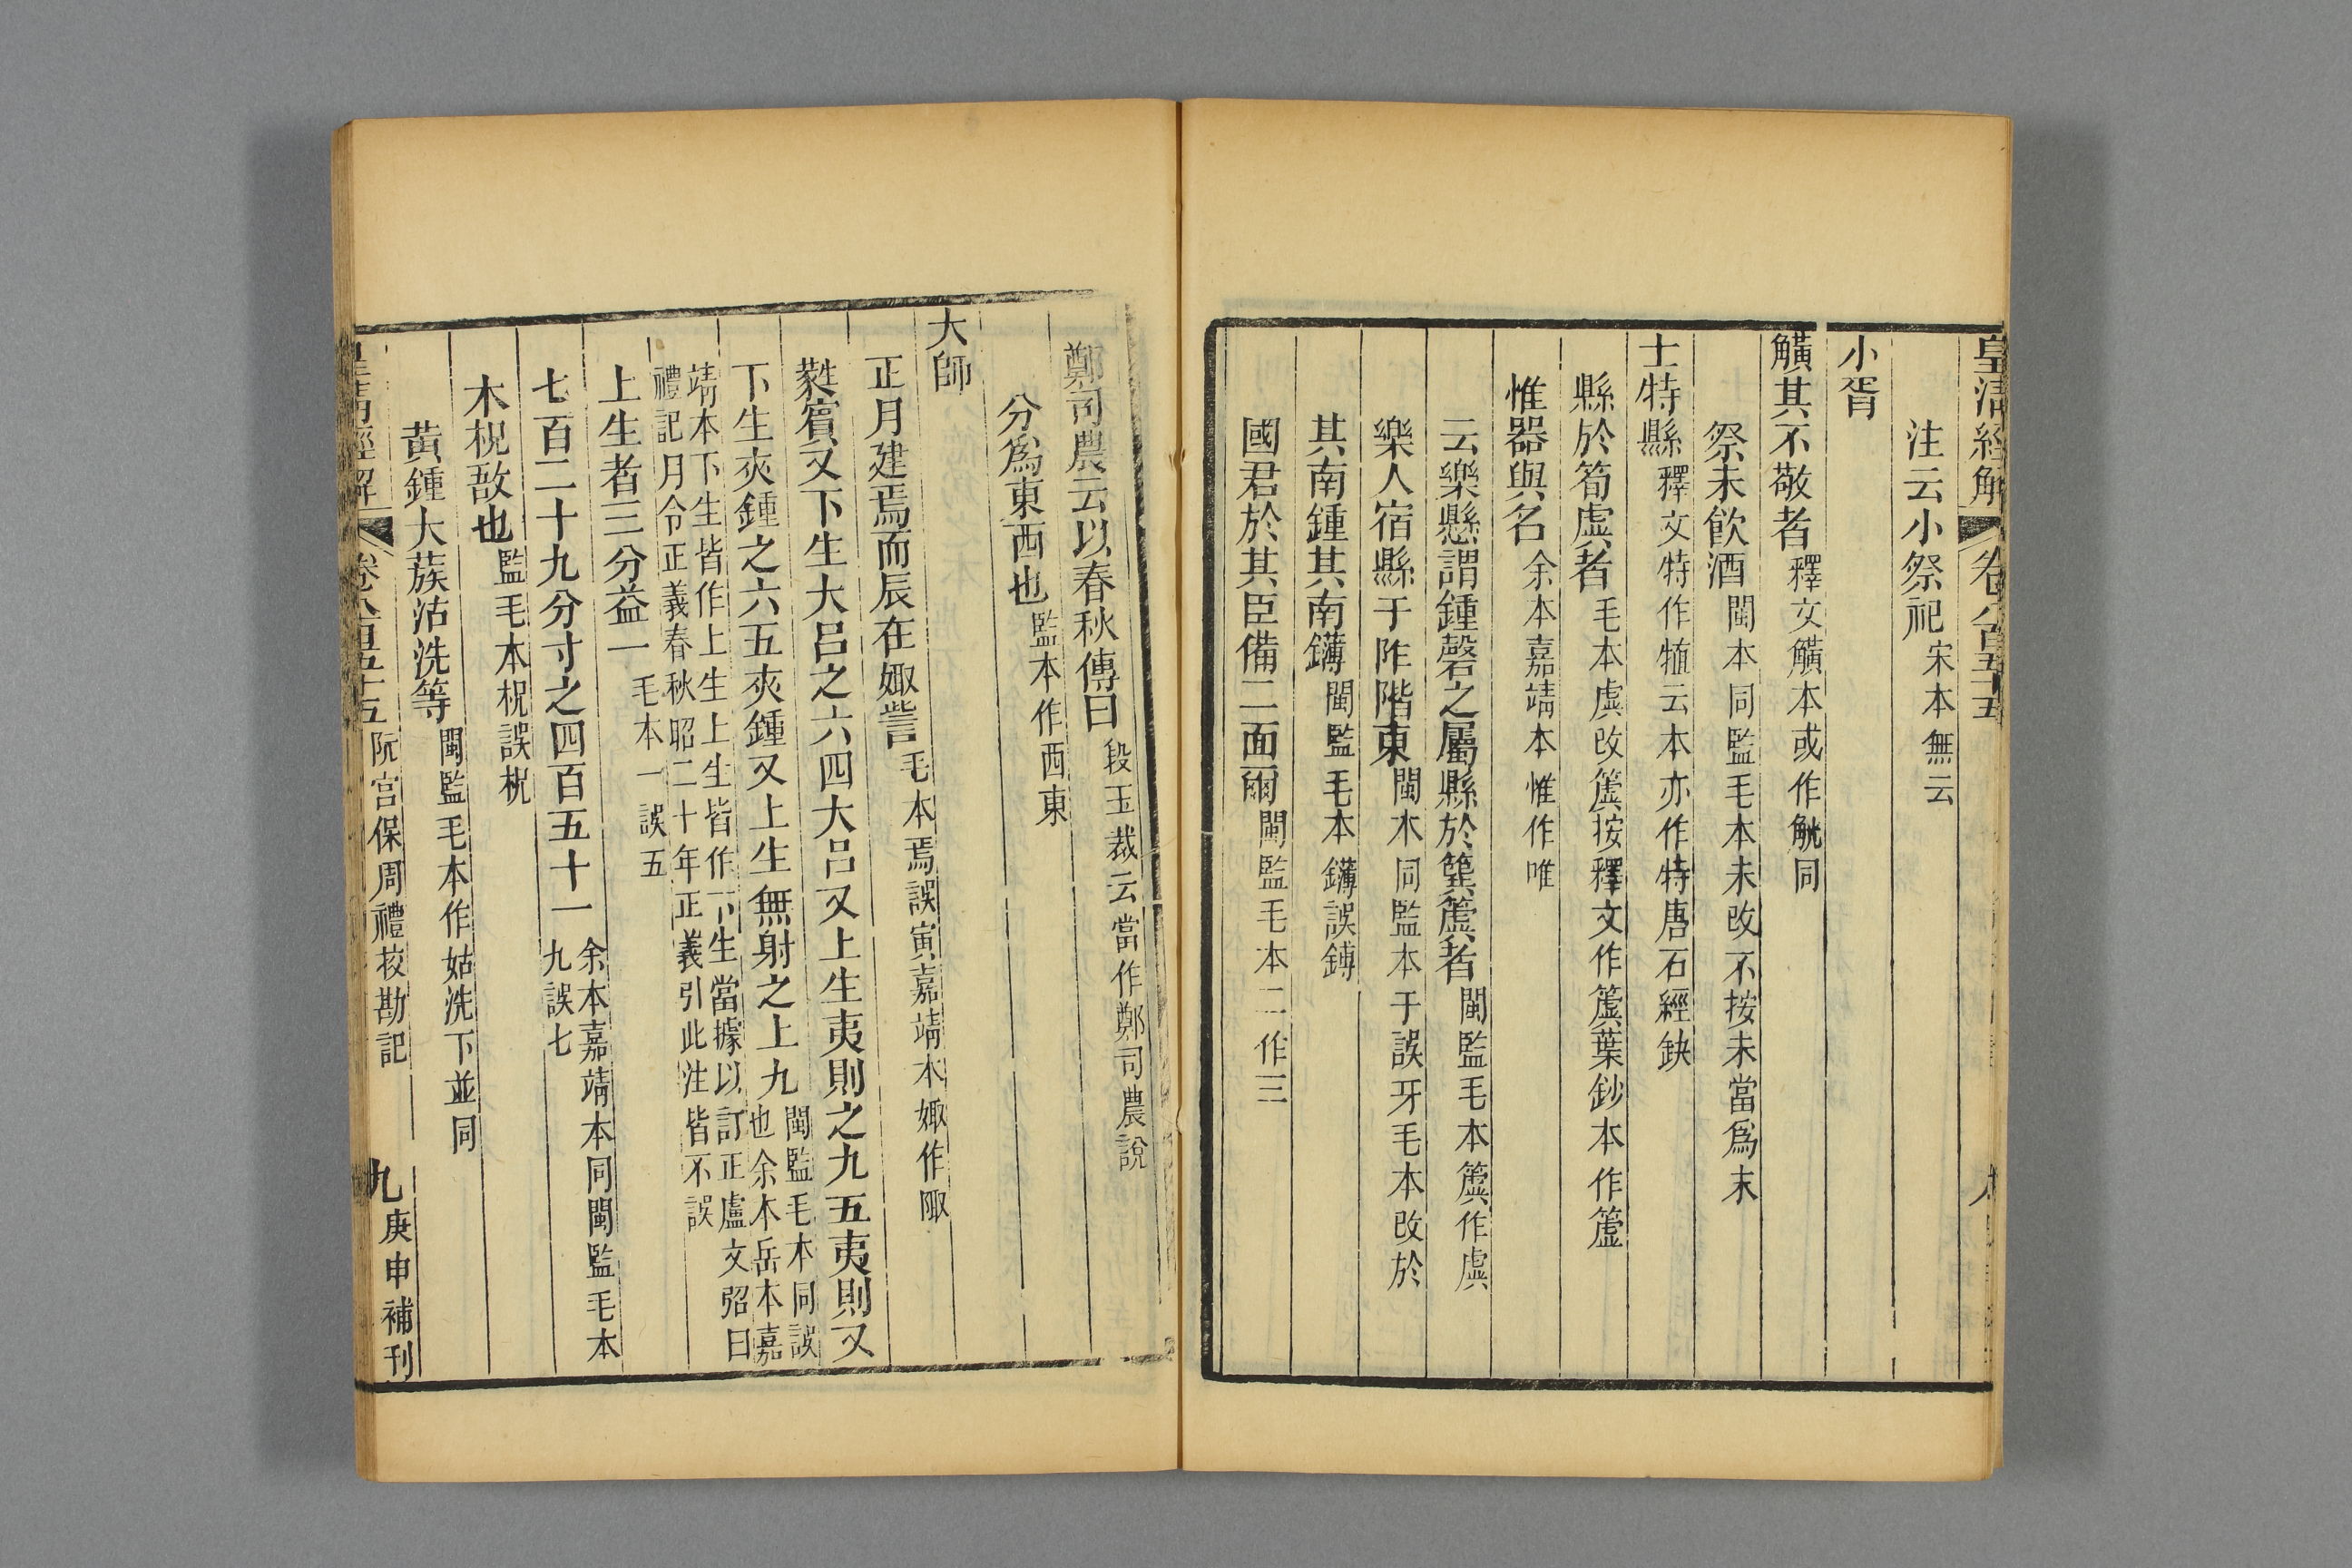 皇清經解 卷八百五十五
注云小祭祀宋本無云
小胥
觵其不敬者釋文觵本或作觥同
祭未飲酒閩本同監毛本未改不按未當爲末
士特縣釋文特作犆云本亦作特唐石經缺
縣於筍虡者毛本虡改簴按釋文作簴葉鈔本作簴
惟器與名余本嘉靖本惟作唯
云樂懸謂鍾磬之屬縣於簨簴者閩監毛本簴作虡
樂人宿縣于阼階東閩本同監本于誤牙毛本改於
其南鍾其南鑮閩監毛本鑮誤鎛
國君於其臣備二面爾閩監毛本二作三
鄭司農云以春秋傳曰段玉裁云當作鄭司農說
分爲東西也監本作西東
大師
正月建焉而辰在娵訾毛本焉誤寅嘉靖本娵作陬
蕤賓又下生大呂之六四大呂又上生夷則之九五夷則又
下生夾鍾之六五夾鍾又上生無射之上九閩監毛本同誤也余本岳本嘉
靖本下生皆作上生上生皆作下生當據以訂正盧文弨曰禮記月令正義春秋昭二十年正義引此注皆不誤
上生者三分益一毛本一誤五
七百二十九分寸之四百五十一余本嘉靖本同閩監毛本九誤七
木柷敔也監毛本柷誤柷
黃鍾大蔟沽洗等閩監毛本作姑洗下並同
皇清經解 卷八百五十五 阮宮保周禮挍勘記 九 庚申補刊